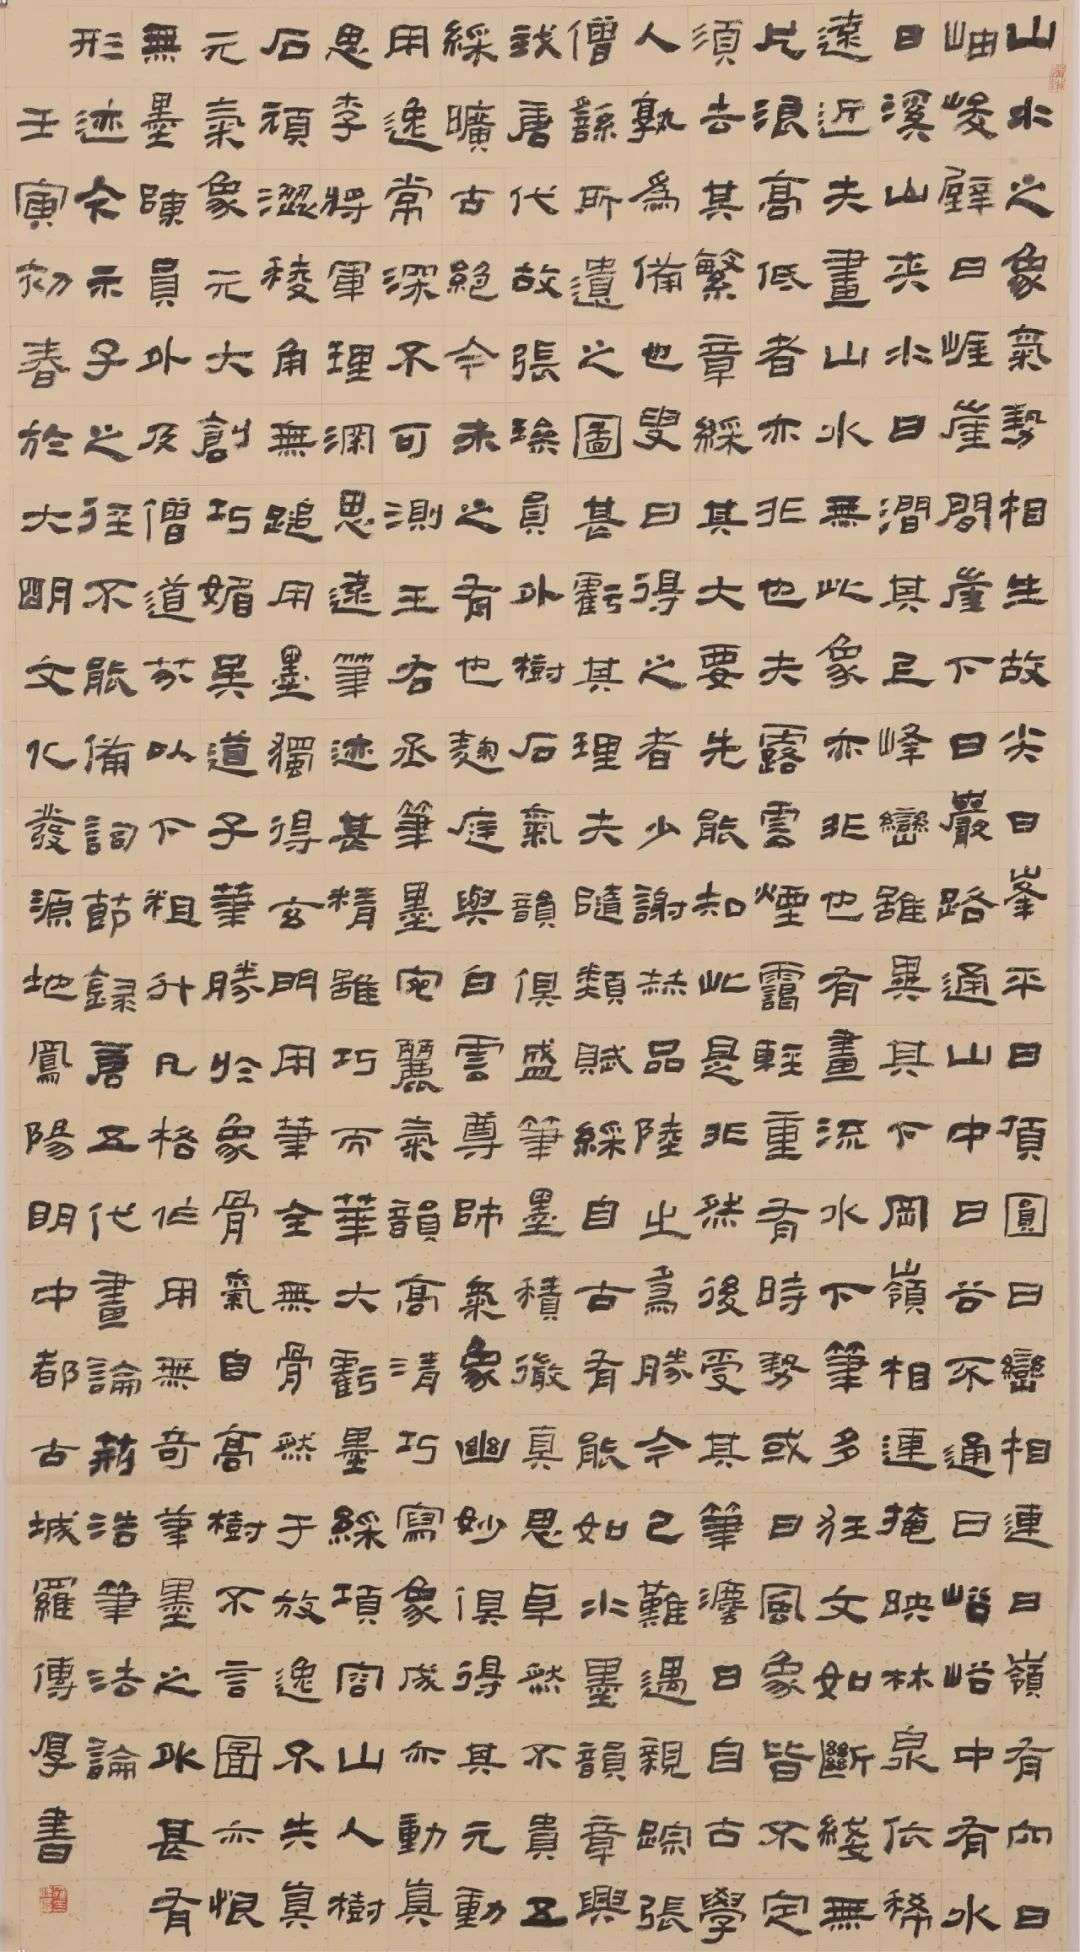 山水之象氣勢相生故尖曰峯平曰頂圓曰巒相連曰嶺有穴曰
岫峻壁曰崕崖間崖下曰巖路通山中曰谷不通曰峪峪中有水
曰溪山夾水曰澗其上峰巒雖異其下岡嶺相連掩映林泉依稀
遠近夫畫山水無此象亦非也有畫流水下筆多狂文如斷綫無
片浪高低者亦非也夫露雲煙靄輕重有時勢或曰風象皆不定
須去其繁章綵其大要先能知此是非然後受其筆灋曰自古學
人孰為備也叟曰得之者少謝赫品陸之為勝今已難遇親踪張
僧繇所遺之圖甚虧其理夫隨類賦綵自古有能如水墨韻章興
我唐代故張璪員外樹石氣韻俱盛筆墨積徹真思卓然不貴五
綵曠古絕今未之有也麹庭與白雲尊師氣象幽妙俱得其元動
用逸常深不可測王右丞筆墨宛麗氣韻高清巧寫象成亦動真
思李將軍理深思遠筆迹甚精雖巧而華大虧墨綵項容山人樹
石頑澀稜角無用墨獨得玄門用筆全無骨然于放逸不失真
元氣象元大創巧媚吳道子筆勝於象骨氣自高樹不言圖亦恨
無墨陳員外及僧道芬以下粗升凡格作用無奇筆墨之行甚有
形迹今示子之徑不能備詞節錄唐五代畫論荊浩筆法論
壬寅初春於大明文化發源地鳳陽明中都古城羅傳厚書